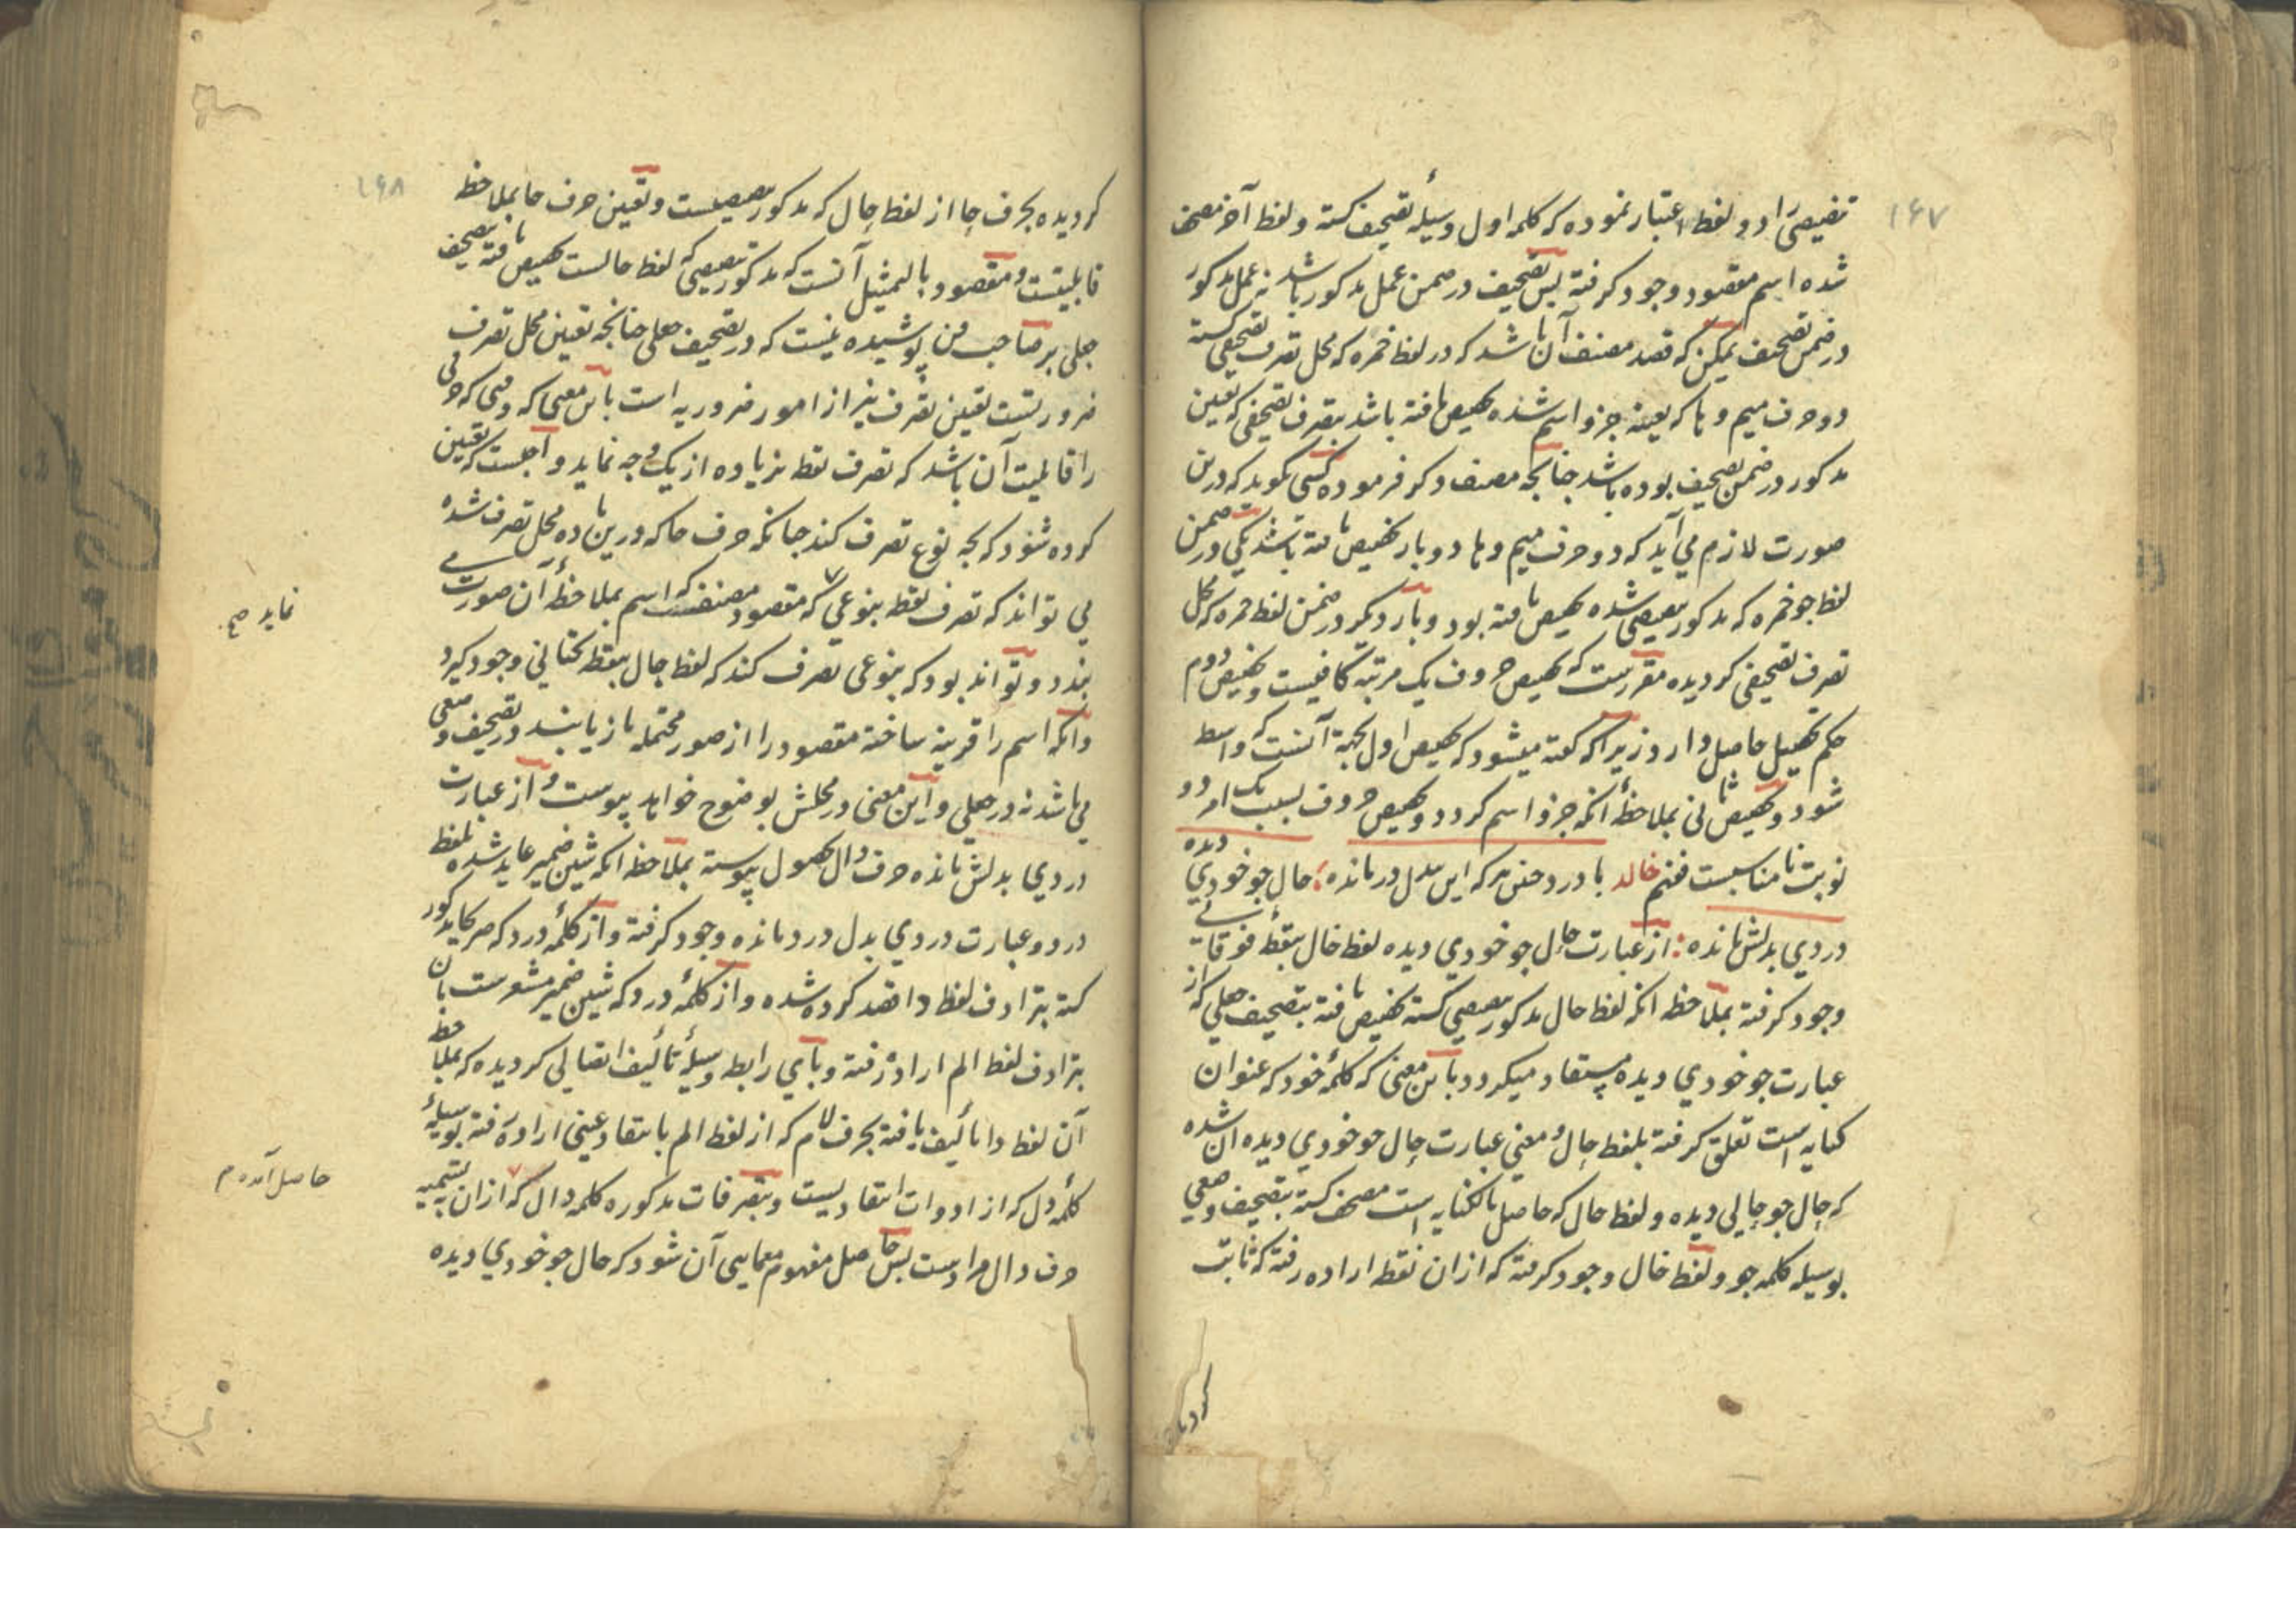 ۱۶۷
تنصیصی را دو لفظ اعتبار نموده که کلمه اول وسیلهٔ تصحیف کشته و لفظ آخر مصحف
شده اسم مقصود وجود کرفته پس تصحیف در ضمن عمل مذکور باشد نه عمل مذکور
در ضمن تصحیف یمکن که قصد مصنف آن باشد که در لفظ خمره که محل تصرف تصحیفی کشته
دو حرف میم و را که بعینه جزو اسم شده تحصیص یافته باشد بتصرف تصحیفی که تعین
مذکور در ضمن تصحیف بوده باشد چنانچه مصنف ذکر فرموده کسی نکوید که درین
صورت لازم می آید که دو حرف میم و را دو بار تخصیص یافته باشد یکی در ضمن
لفظ جو خمره که مذکور تنصیصی شده تخصیص یافته بود و بار دیکر در ضمن لفظ خمره که محل
تصرف تصحیفی کردیده مقررست که تخصیص حروف یک مرتبه کافیست و تخصیص دوم
حکم تحصیل حاصل دارد زیرا که کفته میشود که تخصیص اول بجهة آنست که واسطه
شود و تخصیص ثانی بملاحظهٔ آنکه جزو اسم کردد و تخصیص حروف بسبب یک امر دو
نوبت نامناسبست فتم خالد با درد حنین هر که این بدل درمانده ؛ حال جو خودی دیده
دردی بدلش مانده : از عبارت حال جو خودی دیده لفظ خال بنقطهٔ فوقانی
وجود کرفته بملاحظه انکه لفظ حال مذکور تنصیصی کشته تخصیص یافته بتصحیف جعلی که از
عبارت جو خودی دیده مستفاد میکردد باین معنی که کلمهٔ خود که عنوان
کنایه است تعلق کرفته بلفظ حال و معنی عبارت حال جو خودی دیده آن شده
که حال جو حالی دیده و لفظ حال که حاصل بالکنایه است مصحف کشته بتصحیف وضعی
بوسیله کلمه جو و لفظ خال وجود کرفته که ازان نقطه اراده رفته که ثابت
۱۶۸
کردیده بحرف حا از لفظ حال که مذکور تنصیصیست و تعین حرف حا بملاحظه
قابلیتست و مقصود بالتمثیل آنست که مذکور تنصیصی که لفظ حالست تخصیص یافته بتصحیف
جعلی بر صاحب فن پوشیده نیست که در تصحیف جعلی چنانچه تعین محل تصرف
ضرورتست تعین تصرف نیز از امور ضروریه است باین معنی که وقتی که حرفی
را قابلیت آن باشد که تصرف نقطه بزیاده از یک وجه نماید واجبست که تعین
کرده شود که بچه نوع تصرف کند چنانکه حرف حا که درین ماده محل تصرف شده
می تواند که تصرف نقطه بنوعی که مقصود مصنفست که اسم بملاحظهٔ آن صورت
بندد و تواند بود که بنوعی تصرف کند که لفظ جال بنقطه تحتانی وجود کیرد
وانکه اسم را قرینه ساخته مقصود را از صور محتمله باز یابند در تصحیف وضعی
می باشد نه در جعلی و این معنی در محلش بوضوح خواهد پیوست و از عبارت
دردی بدلش مانده حرف دال بحصول پیوسته بملاحظه انکه شین ضمیر عاید شده بلفظ
درد و عبارت دردی بدل درد مانده وجود کرفته و از کلمهٔ درد که صریحا مذکور
کشته بترادف لفظ دا قصد کرده شده و از کلمهٔ درد که شین ضمیر مشعرست بان
بترادف لفظ الم اراده رفته و بای رابطه وسیلهٔ تألیف اتصالی کردیده که بملاحظه
آن لفظ دا تألیف یافته بحرف لام که از لفظ الم بانتقاد عینی اراده رفته بوسیلهٔ
کلمهٔ دل که از ادوات انتقادیست و بتصرفات مذکوره کلمه دال که ازان بتسمیه
حرف دال مرادست پس حاصل مفهوم معمایی آن شود که حال جو خودی دیده
نماید صح
حاصل آمده م